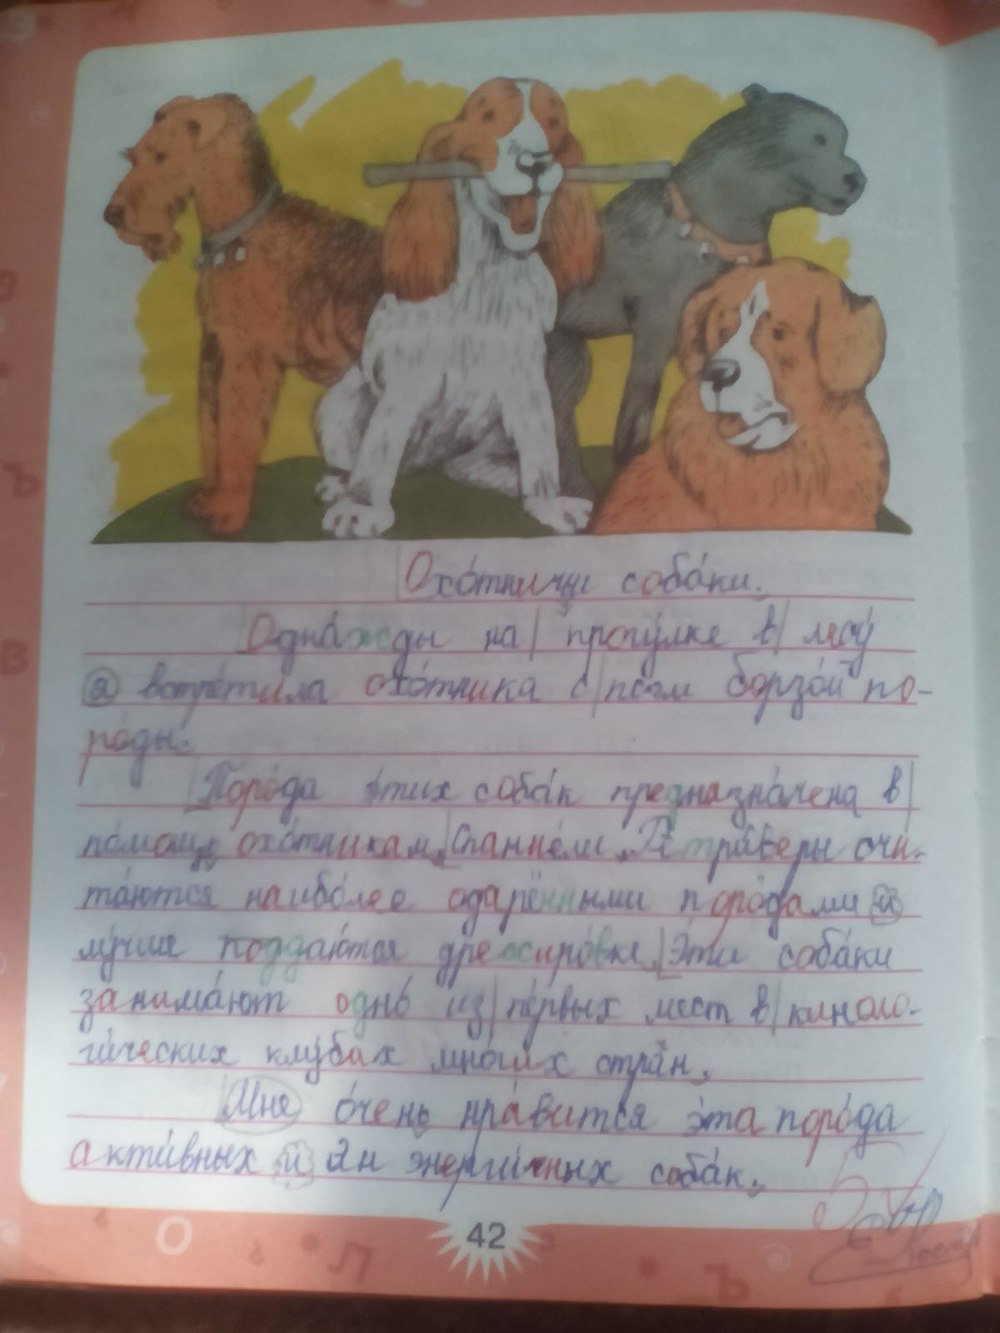 Охо́тничьи соба́ки.
Одна́жды на прогу́лке в лесу́
я встре́тила охо́тника с псом борзо́й по-
ро́ды.
Поро́да э́тих соба́к предназна́чена в
по́мощь охо́тникам. Спание́ли, Ретри́веры счи-
та́ются наибо́лее одарёнными поро́дами и
лу́чше поддаю́тся дрессиро́вке. Э́ти соба́ки
занима́ют одно́ из пе́рвых мест в киноло-
ги́ческих клу́бах мно́гих стра́н.
Мне о́чень нра́вится э́та поро́да
акти́вных и энерги́чных соба́к.
5
42
О Л Ъ
В
Ъ